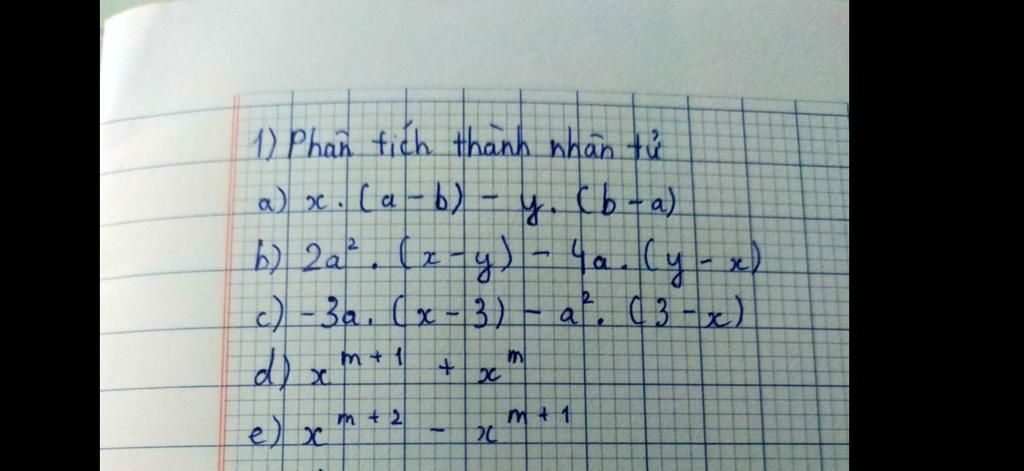 1) Phân tích thành nhân tử
a) x. (a - b) - y. (b - a)
b) 2a². (x - y) - 4a. (y - x)
c) -3a. (x - 3) - a². (3 - x)
d) x^{m+1} + x^{m}
e) x^{m+2} - x^{m+1}